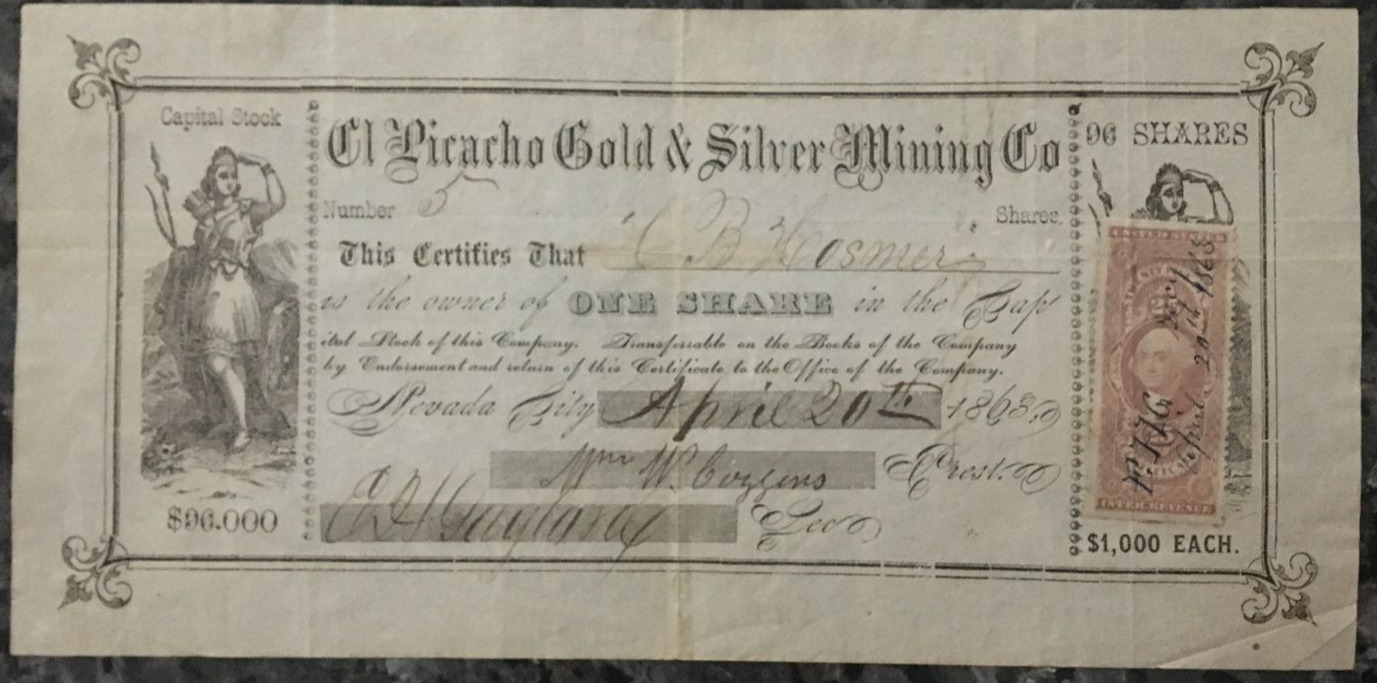 Capital Stock
El Picacho Gold & Silver Mining Co
96 SHARES
Number 5
Shares
This Certifies That B Hosmer
is the owner of ONE SHARE in the Cap
ital Stock of this Company. Transferrable on the Books of the Company
by Endorsement and return of this Certificate to the Office of the Company.
Nevada City April 20th 1863
Wm W. Cozzens Prest.
Sec
$96.000
UNITED STATES
April 20th 1863
INTER. REVENUE
$1,000 EACH.